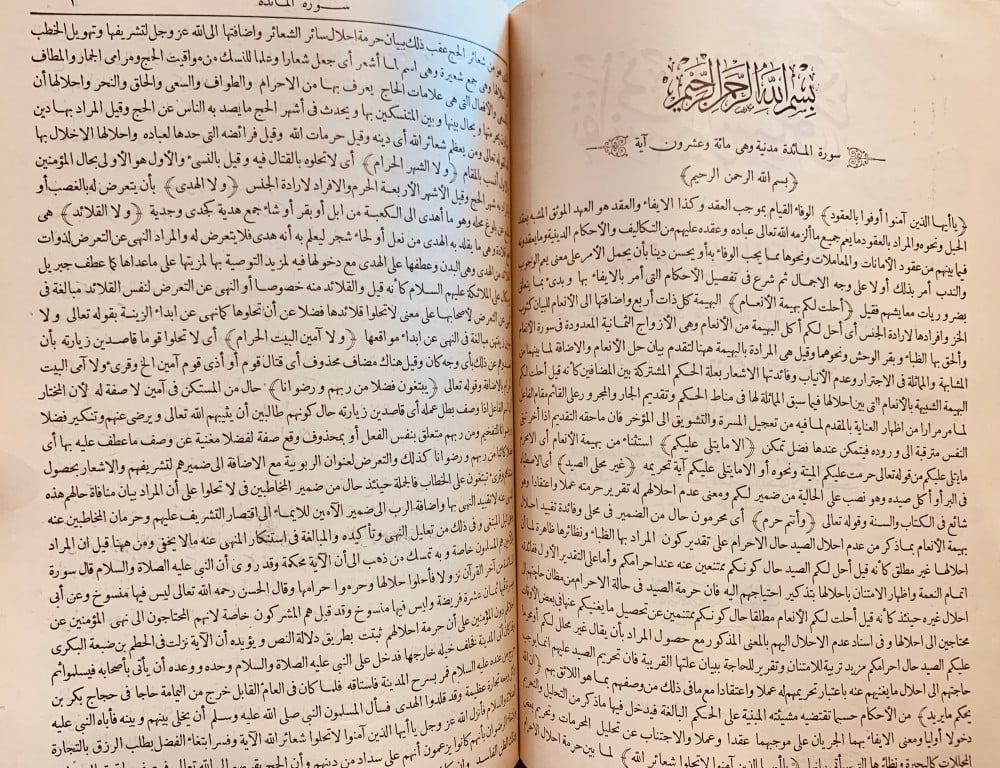 بسم الله الرحمن الرحيم
سورة المائدة مدنية وهى مائة وعشرون آية
﴿بسم الله الرحمن الرحيم﴾
﴿ياأيها الذين آمنوا أوفوا بالعقود﴾ الوفاء القيام بموجب العقد وكذا الايفاء والعقد هو العهد الموثق المشبه بعقد
الحبل ونحوه والمراد بالعقود ما يعم جميع ما ألزمه الله تعالى عباده وعقده عليهم من التكاليف والأحكام الدينية وما يعقدونه
فيما بينهم من عقود الأمانات والمعاملات ونحوها مما يجب الوفاء به أو يحسن دينا بأن يحمل الأمر على معنى يعم الوجوب
والندب أمر بذلك أولا على وجه الاجمال ثم شرع فى تفصيل الأحكام التى أمر بالايفاء بها وبدئ بما يتعلق
بضروريات معايشهم فقيل ﴿أحلت لكم بهيمة الأنعام﴾ البهيمة كل ذات أربع واضافتها الى الأنعام للبيان كثوب
الخز وافرادها لارادة الجنس أى أحل لكم أكل البهيمة من الأنعام وهى الأزواج الثمانية المعدودة فى سورة الأنعام
وألحق بها الظباء وبقر الوحش ونحوهما وقيل هى المرادة بالبهيمة ههنا لتقدم بيان حل الأنعام والاضافة لما بينهما من
المشابهة والمماثلة فى الاجترار وعدم الأنياب وفائدتها الاشعار بعلة الحكم المشتركة بين المضافين كأنه قيل أحلت لكم
البهيمة الشبيهة بالأنعام التى بين احلالها فيما سبق المماثلة لها فى مناط الحكم وتقديم الجار والمجرور على القائم مقام الفاعل
لما مر مرارا من اظهار العناية بالمقدم لما فيه من تعجيل المسرة والتشويق الى المؤخر فان ماحقه التقديم اذا أخر تبقى
النفس مترقبة الى وروده فيتمكن عندها فضل تمكن ﴿الا ما يتلى عليكم﴾ استثناء من بهيمة الأنعام أى الا محرم
ما يتلى عليكم من قوله تعالى حرمت عليكم الميتة ونحوه أو الا ما يتلى عليكم آية تحريمه ﴿غير محلى الصيد﴾ أى الاصطياد
فى البر أو أكل صيده وهو نصب على الحالية من ضمير لكم ومعنى عدم احلالهم له تقرير حرمته عملا واعتقادا وهو
شائع فى الكتاب والسنة وقوله تعالى ﴿وأنتم حرم﴾ أى محرمون حال من الضمير فى محلى وفائدة تقييد احلال
بهيمة الأنعام بما ذكر من عدم احلال الصيد حال الاحرام على تقدير كون المراد بها الظباء ونظائرها ظاهرة لما أن
احلالها غير مطلق كأنه قيل أحل لكم الصيد حال كونكم ممتنعين عنه عند احرامكم وأما على التقدير الأول ففائدته
اتمام النعمة واظهار الامتنان باحلالها بتذكير احتياجهم اليه فان حرمة الصيد فى حالة الاحرام من مظان حاجتهم الى
احلال غيره حينئذ كأنه قيل أحلت لكم الأنعام مطلقا حال كونكم ممتنعين عن تحصيل ما يغنيكم عنها فى بعض الأوقات
محتاجين الى احلالها وفى اسناد عدم الاحلال اليهم بالمعنى المذكور مع حصول المراد بأن يقال غير محلل لكم أو محرما
عليكم الصيد حال احرامكم مزيد تربية للامتنان وتقرير للحاجة ببيان علتها القريبة فان تحريم الصيد عليهم انما يوجب
حاجتهم الى احلال ما يغنيهم عنه باعتبار تحريمهم له عملا واعتقادا مع ما فى ذلك من وصفهم بما هو اللائق بهم ﴿ان الله
يحكم ما يريد﴾ من الأحكام حسبما تقتضيه مشيئته المبنية على الحكم البالغة فيدخل فيها ما ذكر من التحليل والتحريم
دخولا أوليا ومعنى الايفاء بهما الجريان على موجبهما عقدا وعملا والاجتناب عن تحليل المحرمات وتحريم بعض
﴿ياأيها الذين آمنوا لا تحلوا شعائر الله﴾ لما بين حرمة احلال
سورة المائدة
من شعائر الحج عقب ذلك ببيان حرمة احلال سائر الشعائر واضافتها الى الله عز وجل لتشريفها وتهويل الخطب
وهى جمع شعيرة وهى اسم لما أشعر أى جعل شعارا وعلما للنسك من مواقيت الحج ومرامى الجمار والمطاف
والأفعال التى هى علامات الحاج يعرف بها من الاحرام والطواف والسعى والحلق والنحر واحلالها أن
ويحال بينها وبين المتنسكين بها ويحدث فى أشهر الحج ما يصد به الناس عن الحج وقيل المراد بها دين
تعالى ومن يعظم شعائر الله أى دينه وقيل حرمات الله وقيل فرائضه التى حدها لعباده واحلالها الاخلال بها
أنسب بالمقام ﴿ولا الشهر الحرام﴾ أى لا تحلوه بالقتال فيه وقيل بالنسىء والأول هو الأولى بحال المؤمنين
شهر الحج وقيل الأشهر الأربعة الحرم والافراد لارادة الجنس ﴿ولا الهدى﴾ بأن يتعرض له بالغصب أو
بلوغ محله وهو ما أهدى الى الكعبة من ابل أو بقر أو شاء جمع هدية كجدى وجدية ﴿ولا القلائد﴾ هى
وهى ما يقلد به الهدى من نعل أو لحاء شجر ليعلم به أنه هدى فلا يتعرض له والمراد النهى عن التعرض لذوات
من الهدى وهى البدن وعطفها على الهدى مع دخولها فيه لمزيد التوصية بها لمزيتها على ما عداها كما عطف جبريل
على الملائكة عليهم السلام كأنه قيل والقلائد منه خصوصا أو النهى عن التعرض لنفس القلائد مبالغة فى
عن التعرض لأصحابها على معنى لا تحلوا قلائدها فضلا عن أن تحلوها كما نهى عن ابداء الزينة بقوله تعالى ولا
مبالغة فى النهى عن ابداء مواقعها ﴿ولا آمين البيت الحرام﴾ أى لا تحلوا قوما قاصدين زيارته بأن
عن ذلك بأى وجه كان وقيل هناك مضاف محذوف أى قتال قوم أو أذى قوم آمين الخ وقرىء ولا آمى البيت
بالاضافة وقوله تعالى ﴿يبتغون فضلا من ربهم ورضوانا﴾ حال من المستكن فى آمين لا صفة له لأن المختار
اذا وصف بطل عمله أى قاصدين زيارته حال كونهم طالبين أن يثيبهم الله تعالى ويرضى عنهم وتنكير فضلا
ومن ربهم متعلق بنفس الفعل أو بمحذوف وقع صفة لفضلا مغنية عن وصف ما عطف عليه بها أى
من ربهم ورضوانا كذلك والتعرض لعنوان الربوبية مع الاضافة الى ضميرهم لتشريفهم والاشعار بحصول
تبتغون على الخطاب فالجملة حينئذ حال من ضمير المخاطبين فى لا تحلوا على أن المراد بيان منافاة حالهم هذه
لا تقييد النهى بها واضافة الرب الى ضمير الآمين للايماء الى اقتصار التشريف عليهم وحرمان المخاطبين عنه
وفى ذلك من تعليل النهى وتأكيده والمبالغة فى استنكار المنهى عنه ما لا يخفى ومن ههنا قيل ان المراد
المسلمون خاصة وبه تمسك من ذهب الى أن الآية محكمة وقد روى أن النبى عليه الصلاة والسلام قال سورة
من آخر القرآن نزولا فأحلوا حلالها وحرموا حرامها وقال الحسن رحمه الله تعالى ليس فيها منسوخ وعن أبى
ثمان عشرة فريضة وليس فيها منسوخ وقد قيل هم المشركون خاصة لانهم المحتاجون الى نهى المؤمنين عن
دون المؤمنين على أن حرمة احلالهم ثبتت بطريق دلالة النص ويؤيده أن الآية نزلت فى الحطم بن ضبعة البكرى
المدينة فخلف خيله خارجها فدخل على النبى عليه الصلاة والسلام وحده ووعده أن يأتى بأصحابه فيسلموا ثم
من عنده عليه السلام فمر بسرح المدينة فاستاقه فلما كان فى العام القابل خرج من اليمامة حاجا فى حجاج بكر بن
تجارة عظيمة وقد قلدوا الهدى فسأل المسلمون النبى صلى الله عليه وسلم أن يخلى بينهم وبينه فأباه النبى عليه
السلام فأنزل الله عز وجل يا أيها الذين آمنوا لا تحلوا شعائر الله الآية وفسر ابتغاء الفضل بطلب الرزق بالتجارة
بأنهم كانوا يزعمون أنهم على سداد من دينهم وأن الحج يقربهم الى الله تعالى